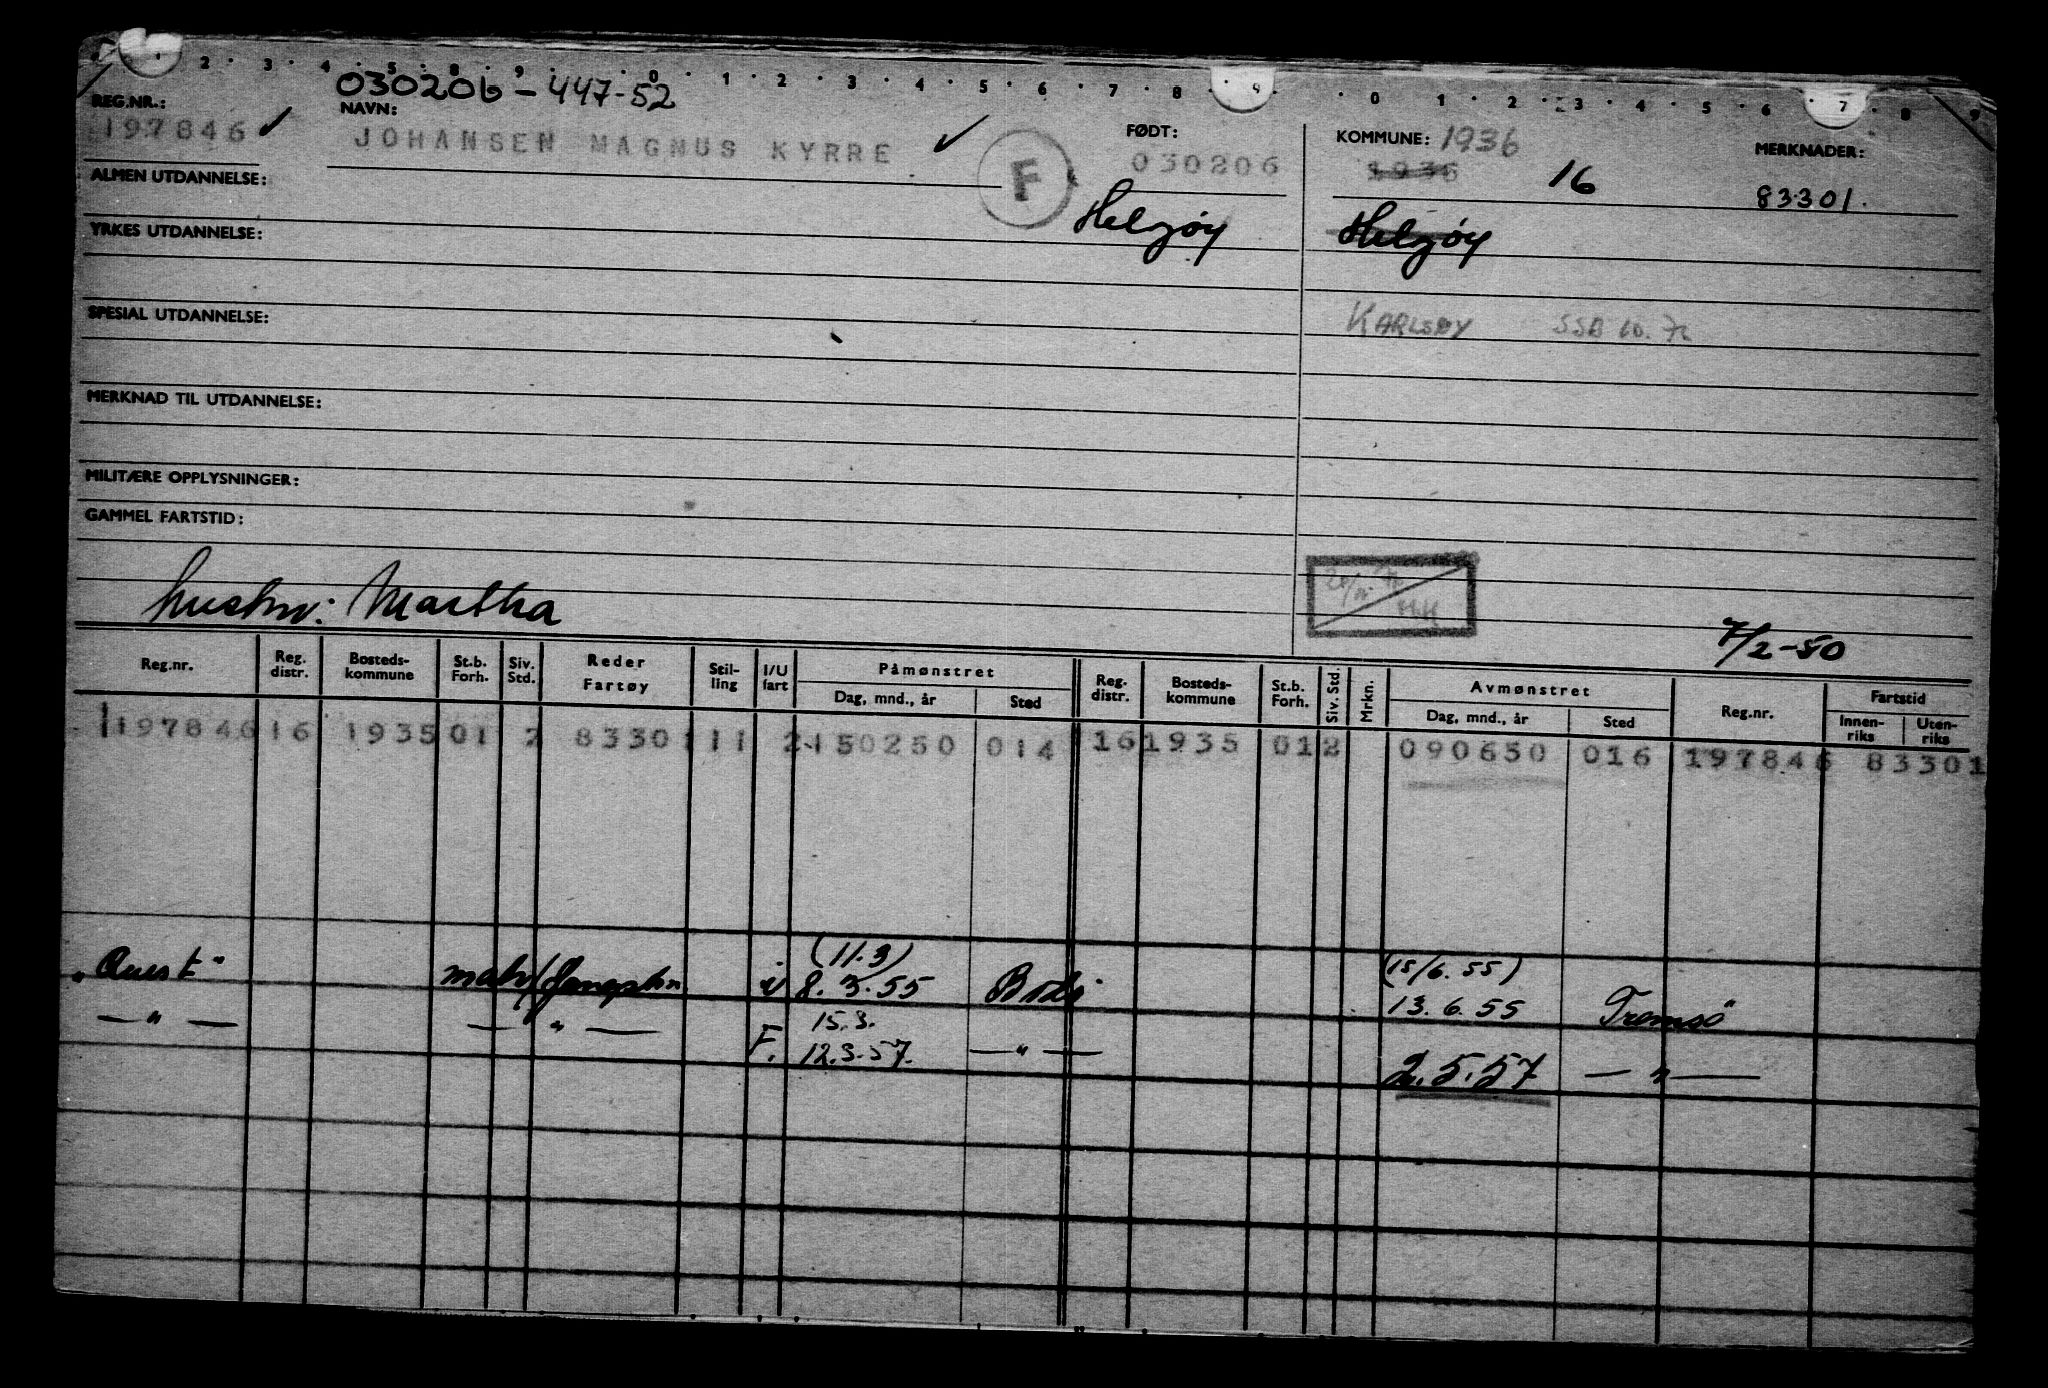 2 · 3 · 4 · 5 · 8 · 9 · 0 · 1 · 2 · 3 · 4 · 5 · 6 · 7 · 8 · 9 · 0 · 1 · 2 · 3 · 4 · 5 · 6 · 7 · 8 · 9
030206-447-52
REG.NR.: NAVN: FØDT: KOMMUNE: 1936 MERKNADER:
197846 ✓ JOHANSEN MAGNUS KYRRE ✓ F 030206 1936 16 83301.
ALMEN UTDANNELSE:
Helgøy Helgøy
YRKES UTDANNELSE:
SPESIAL UTDANNELSE: KARLSØY SSB
MERKNAD TIL UTDANNELSE:
MILITÆRE OPPLYSNINGER:
GAMMEL FARTSTID:
hustru: Martha
7/2-50
Reg.nr. Reg. distr. Bosteds- kommune St.b. Forh. Siv. Std. Reder Fartøy Stil- ling I/U fart Påmønstret Dag, mnd., år Sted Reg. distr. Bosteds- kommune St.b. Forh. Siv. Std. Mrkn. Avmønstret Dag, mnd., år Sted Reg.nr. Fartstid Innen- riks Uten- riks
197846 16 1935 01 2 83301 11 2 150250 014 16 1935 01 2 090650 016 197846 83301
(11.3) (15/6.55)
"Quest" matr/ 8.3.55 Bodø 13.6.55 Tromsø
— " — — " — F. 15.3. 12.3.57. — " — 2.5.57 — " —